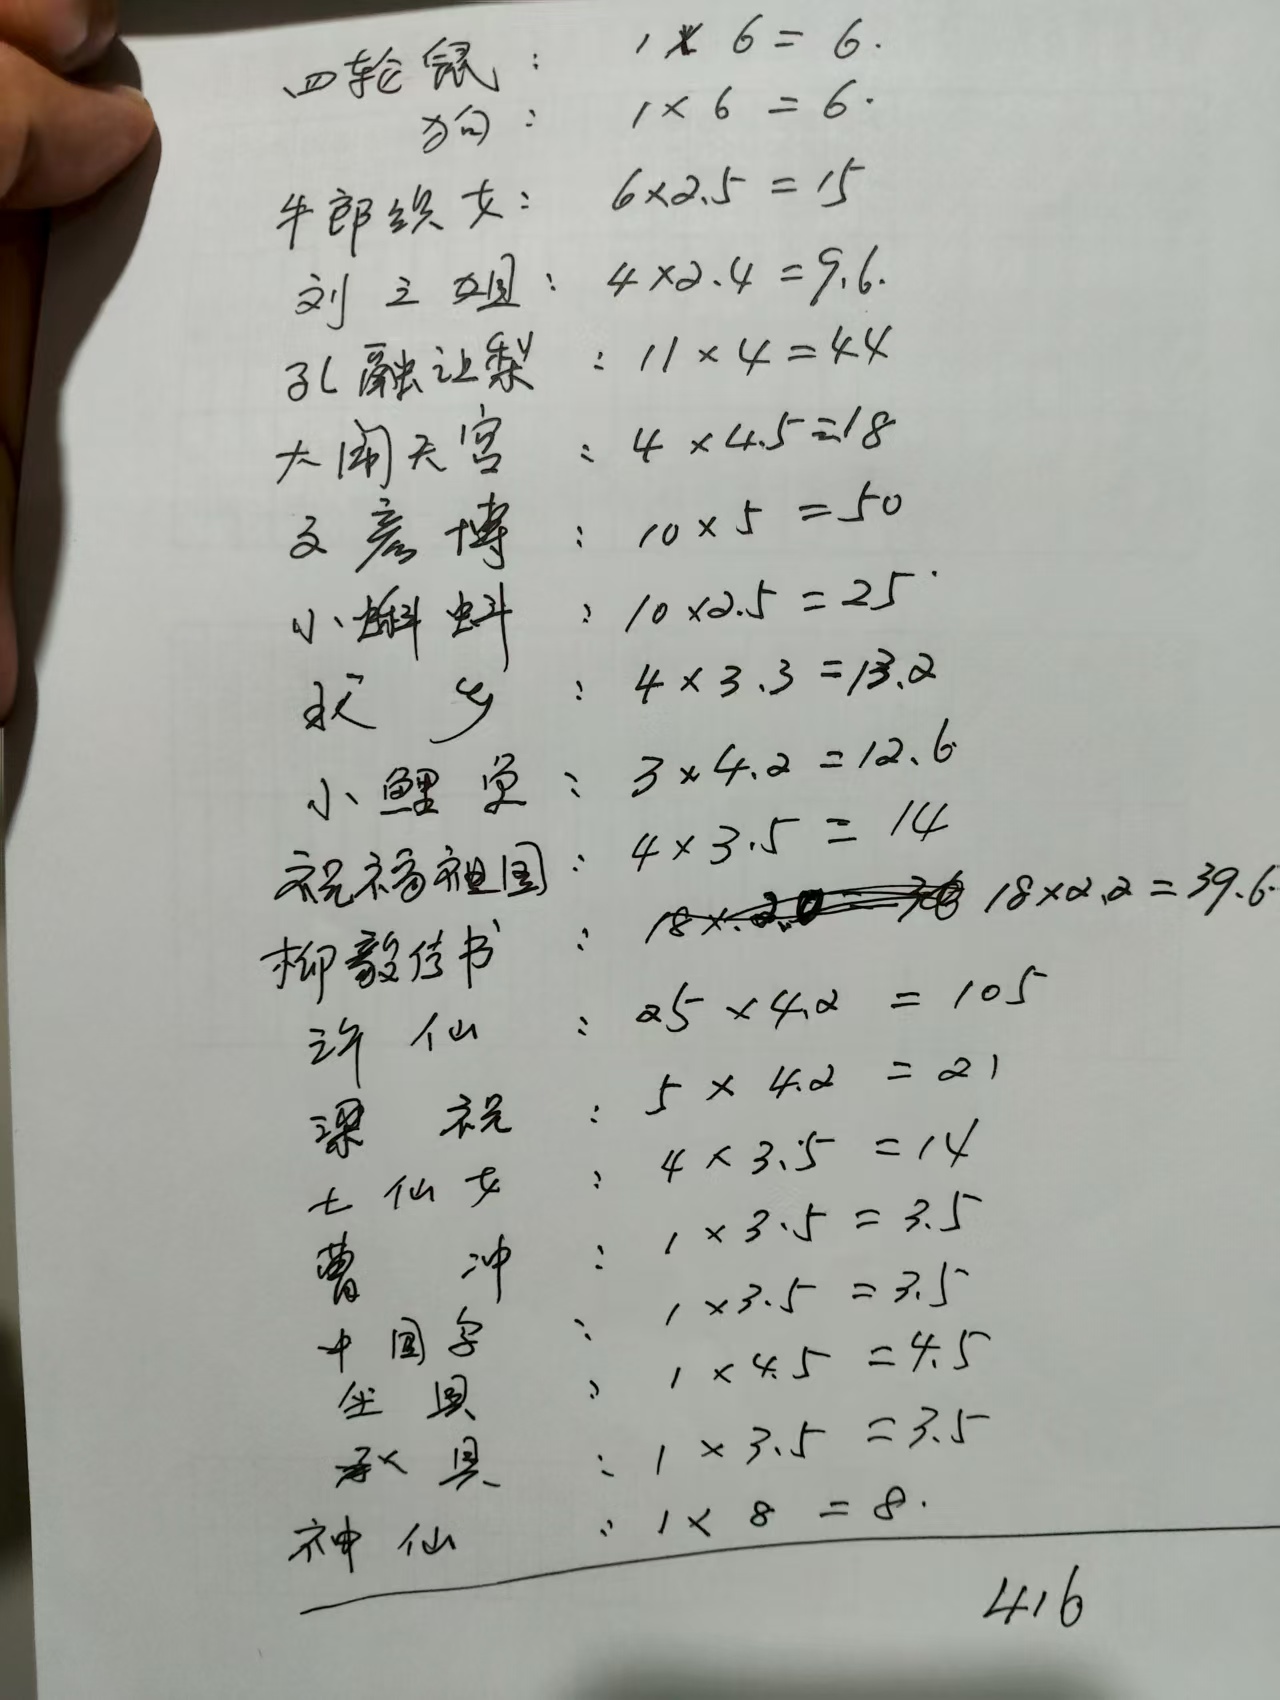 四轮鼠： 1×6=6.
狗： 1×6=6.
牛郎织女： 6×2.5=15
刘三姐： 4×2.4=9.6.
孔融让梨： 11×4=44
大闹天宫： 4×4.5=18
文彦博： 10×5=50
小蝌蚪： 10×2.5=25
乡： 4×3.3=13.2
小鲤鱼： 3×4.2=12.6
祝福祖国： 4×3.5=14
柳毅传书： 18×2.2=39.6
许仙： 25×4.2=105
梁祝： 5×4.2=21
七仙女： 4×3.5=14
曹冲： 1×3.5=3.5
中国字： 1×3.5=3.5
坐具： 1×4.5=4.5
承具： 1×3.5=3.5
神仙： 1×8=8.
416